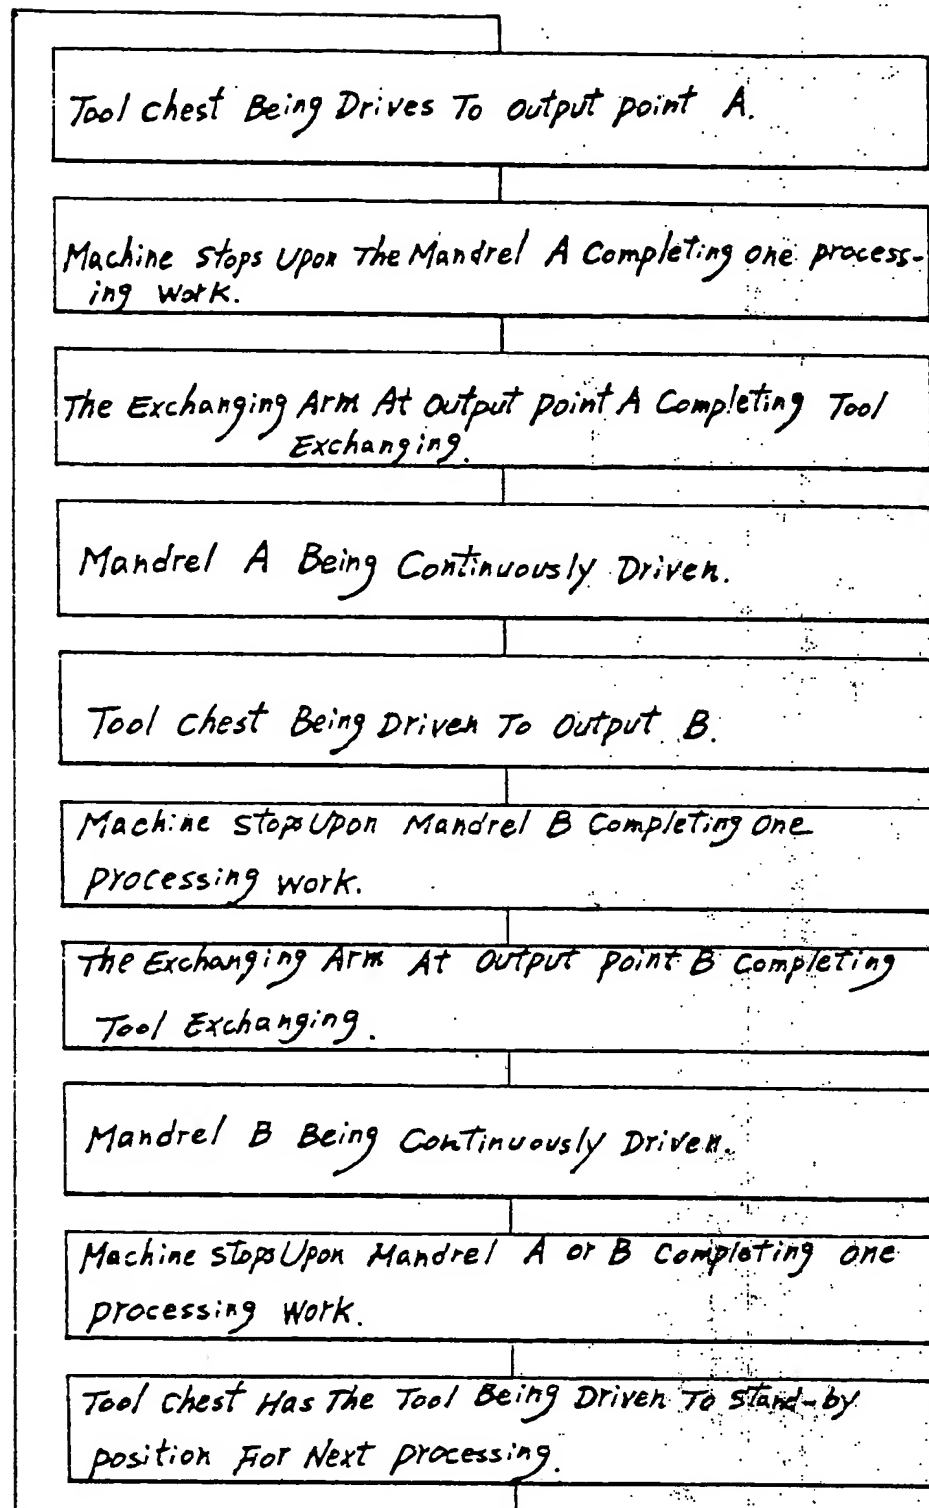 Tool chest Being Drives To output point A.
Machine stops Upon The Mandrel A Completing one process-
ing work.
The Exchanging Arm At output point A Completing Tool
Exchanging.
Mandrel A Being Continuously Driven.
Tool chest Being Driven To output B.
Machine stops Upon Mandrel B Completing one
processing work.
The Exchanging Arm At output point B Completing
Tool Exchanging.
Mandrel B Being Continuously Driven.
Machine stops Upon Mandrel A or B Completing one
processing work.
Tool chest Has The Tool Being Driven To stand-by
position For Next processing.